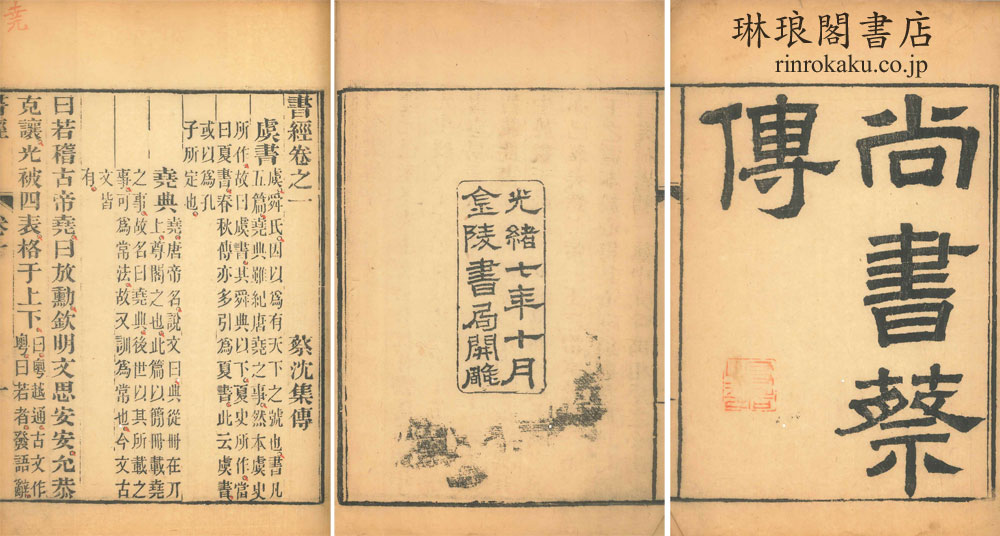 琳琅閣書店
rinrokaku.co.jp
尚書蔡
傳
光緒七年十月
金陵書局開雕
書經卷之一 蔡沈集傳
虞書 虞舜氏因以爲有天下之號也書凡
五篇堯典雖紀唐堯之事然本虞史
所作故曰虞書其舜典以下夏史所作當
曰夏書春秋傳亦多引爲夏書此云虞書
或以爲孔
子所定也
堯典 堯唐帝名說文曰典從冊在丌
上尊閣之也此篇以簡冊載堯
之事故名曰堯典後世以其所載之
事可爲常法故又訓爲常也今文古
文皆
有
曰若稽古帝堯曰放勳欽明文思安安允恭
克讓光被四表格于上下 曰粵越通古文作
粵曰若者發語辭
尭